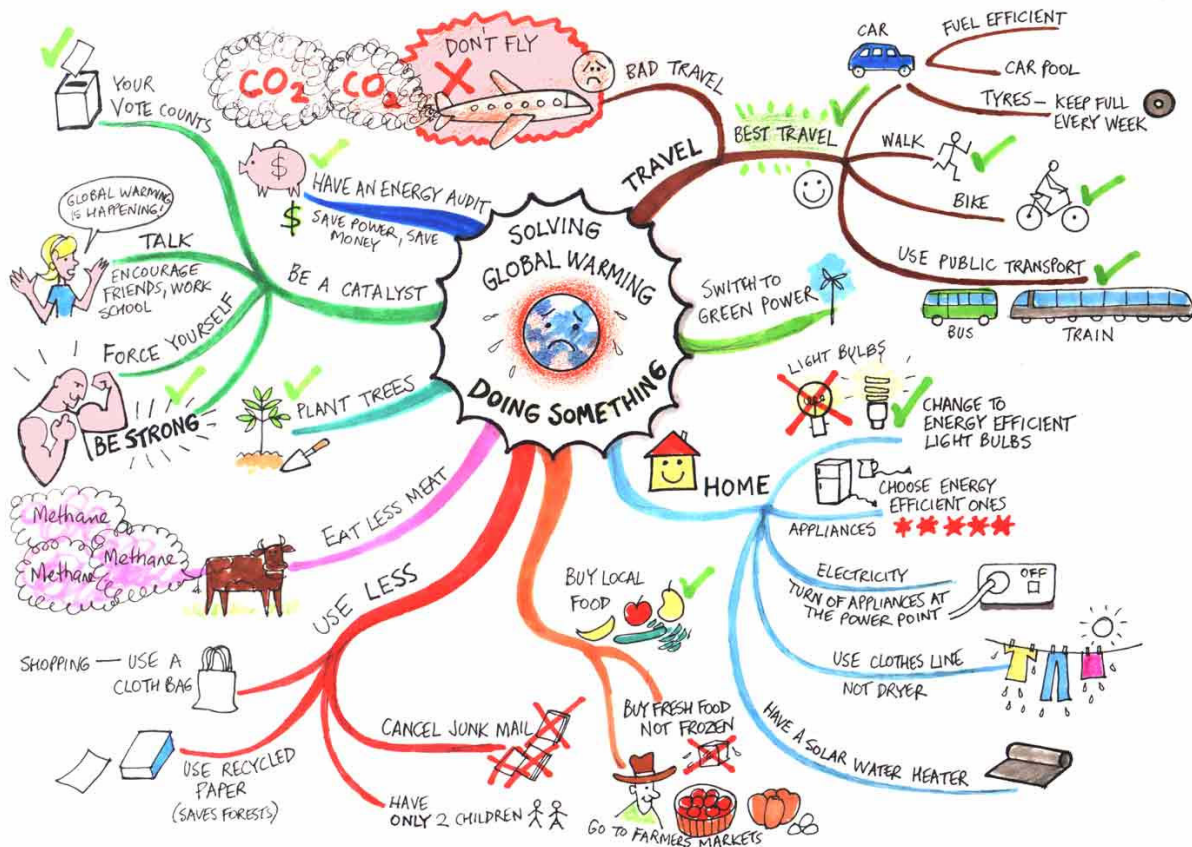 SOLVING
GLOBAL WARMING
DOING SOMETHING
TRAVEL
BAD TRAVEL
DON'T FLY
CO2
CO2
BEST TRAVEL
CAR
FUEL EFFICIENT
CAR POOL
TYRES – KEEP FULL
EVERY WEEK
WALK
BIKE
USE PUBLIC TRANSPORT
BUS
TRAIN
SWITCH TO
GREEN POWER
HOME
LIGHT BULBS
CHANGE TO
ENERGY EFFICIENT
LIGHT BULBS
APPLIANCES
CHOOSE ENERGY
EFFICIENT ONES
ELECTRICITY
TURN OF APPLIANCES AT
THE POWER POINT
OFF
USE CLOTHES LINE
NOT DRYER
HAVE A SOLAR WATER HEATER
BUY LOCAL
FOOD
BUY FRESH FOOD
NOT FROZEN
GO TO FARMERS MARKETS
USE LESS
SHOPPING — USE A
CLOTH BAG
USE RECYCLED
PAPER
(SAVES FORESTS)
CANCEL JUNK MAIL
HAVE
ONLY 2 CHILDREN
EAT LESS MEAT
Methane
Methane
Methane
PLANT TREES
BE A CATALYST
YOUR
VOTE COUNTS
TALK
GLOBAL WARMING
IS HAPPENING!
ENCOURAGE
FRIENDS, WORK
SCHOOL
FORCE YOURSELF
BE STRONG
HAVE AN ENERGY AUDIT
SAVE POWER, SAVE
MONEY
$
$